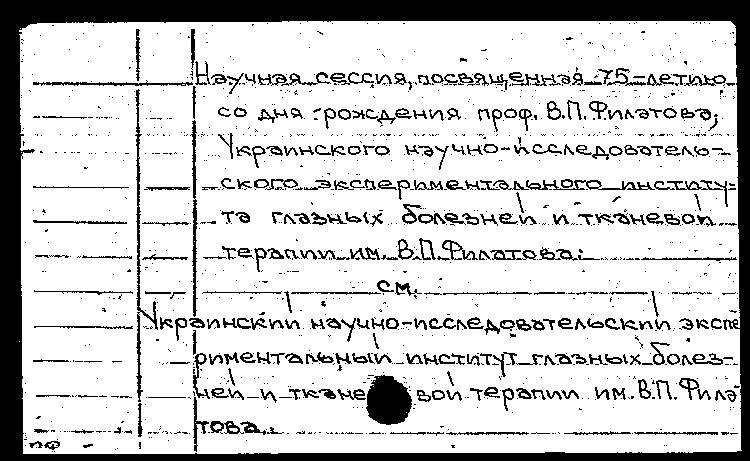 Научная сессия, посвященная 75-летию
со дня рождения проф. В.П.Филатова,
Украинского научно-исследователь-
ского экспериментального институ-
та глазных болезней и тканевой
терапии им. В.П.Филатова.
см.
Украинский научно-исследовательский экспе
риментальный институт глазных болез-
ней и тканевой терапии им. В.П. Фила
това.